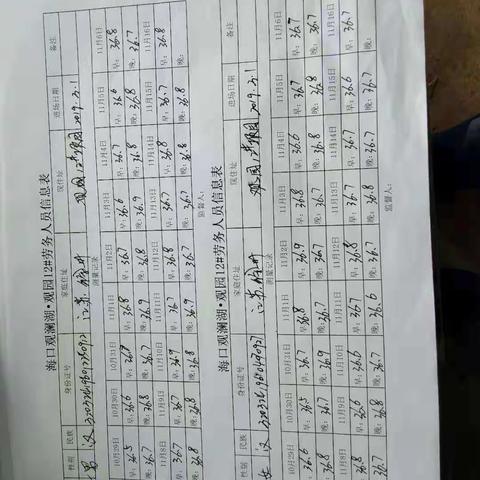 海口观澜湖·观园12#劳务人员信息表
性别 民族 身份证号 家庭住址 现住址 进场日期 备注
男 汉 江苏 观园 2019.2.1
测量记录
10月29日 10月30日 10月31日 11月1日 11月2日 11月3日 11月4日 11月5日 11月6日
早:36.5 早:36.6 早:36.8 早:36.8 早:36.7 早:36.6 早:36.7 早:36.6 早:36.8
晚:36.7 晚:36.8 晚:36.7 晚:36.9 晚:36.8 晚:36.9 晚:36.8 晚:36.8 晚:36.7
11月8日 11月9日 11月10日 11月11日 11月12日 11月13日 11月14日 11月15日 11月16日
早:36.7 早:36.7 早:36.9 早:36.7 早:36.8 早:36.7 早:36.8 早:36.7 早:36.8
晚:36.8 晚:36.8 晚:36.8 晚:36.9 晚:36.7 晚:36.7 晚:36.8 晚:36.8 晚:
监督人:
海口观澜湖·观园12#劳务人员信息表
性别 民族 身份证号 家庭住址 现住址 进场日期 备注
女 汉 江苏 观园 2019.2.1
测量记录
10月29日 10月30日 10月31日 11月1日 11月2日 11月3日 11月4日 11月5日 11月6日
早:36.6 早:36.5 早:36.7 早:36.7 早:36.9 早:36.8 早:36.6 早:36.7 早:36.7
晚:36.8 晚:36.7 晚:36.9 晚:36.8 晚:36.7 晚:36.7 晚:36.8 晚:36.8 晚:36.7
11月8日 11月9日 11月10日 11月11日 11月12日 11月13日 11月14日 11月15日 11月16日
早:36.8 早:36.6 早:36.6 早:36.7 早:36.8 早:36.7 早:36.7 早:36.6 早:36.7
晚:36.7 晚:36.8 晚:36.7 晚:36.6 晚:36.7 晚:36.8 晚:36.7 晚:36.7 晚:
监督人: